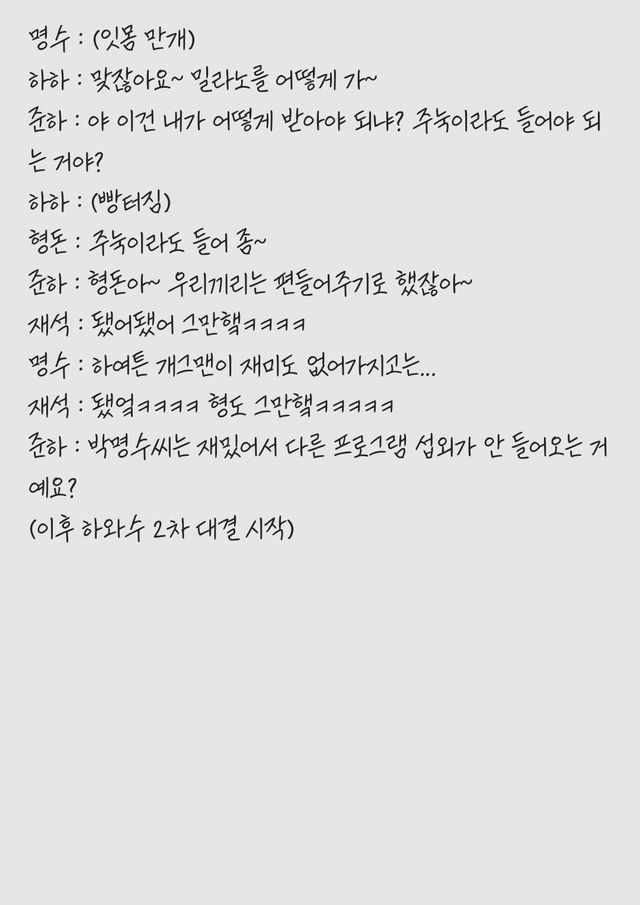 명수 : (잇몸 만개)
하하 : 맞잖아요~ 밀라노를 어떻게 가~
준하 : 야 이건 내가 어떻게 받아야 되냐? 주눅이라도 들어야 되
는 거야?
하하 : (빵터짐)
형돈 : 주눅이라도 들어 좀~
준하 : 형돈아~ 우리끼리는 편들어주기로 했잖아~
재석 : 됐어됐어 그만햌ㅋㅋㅋㅋ
명수 : 하여튼 개그맨이 재미도 없어가지고는...
재석 : 됐엌ㅋㅋㅋㅋ 형도 그만햌ㅋㅋㅋㅋㅋ
준하 : 박명수씨는 재밌어서 다른 프로그램 섭외가 안 들어오는 거
예요?
(이후 하와수 2차 대결 시작)